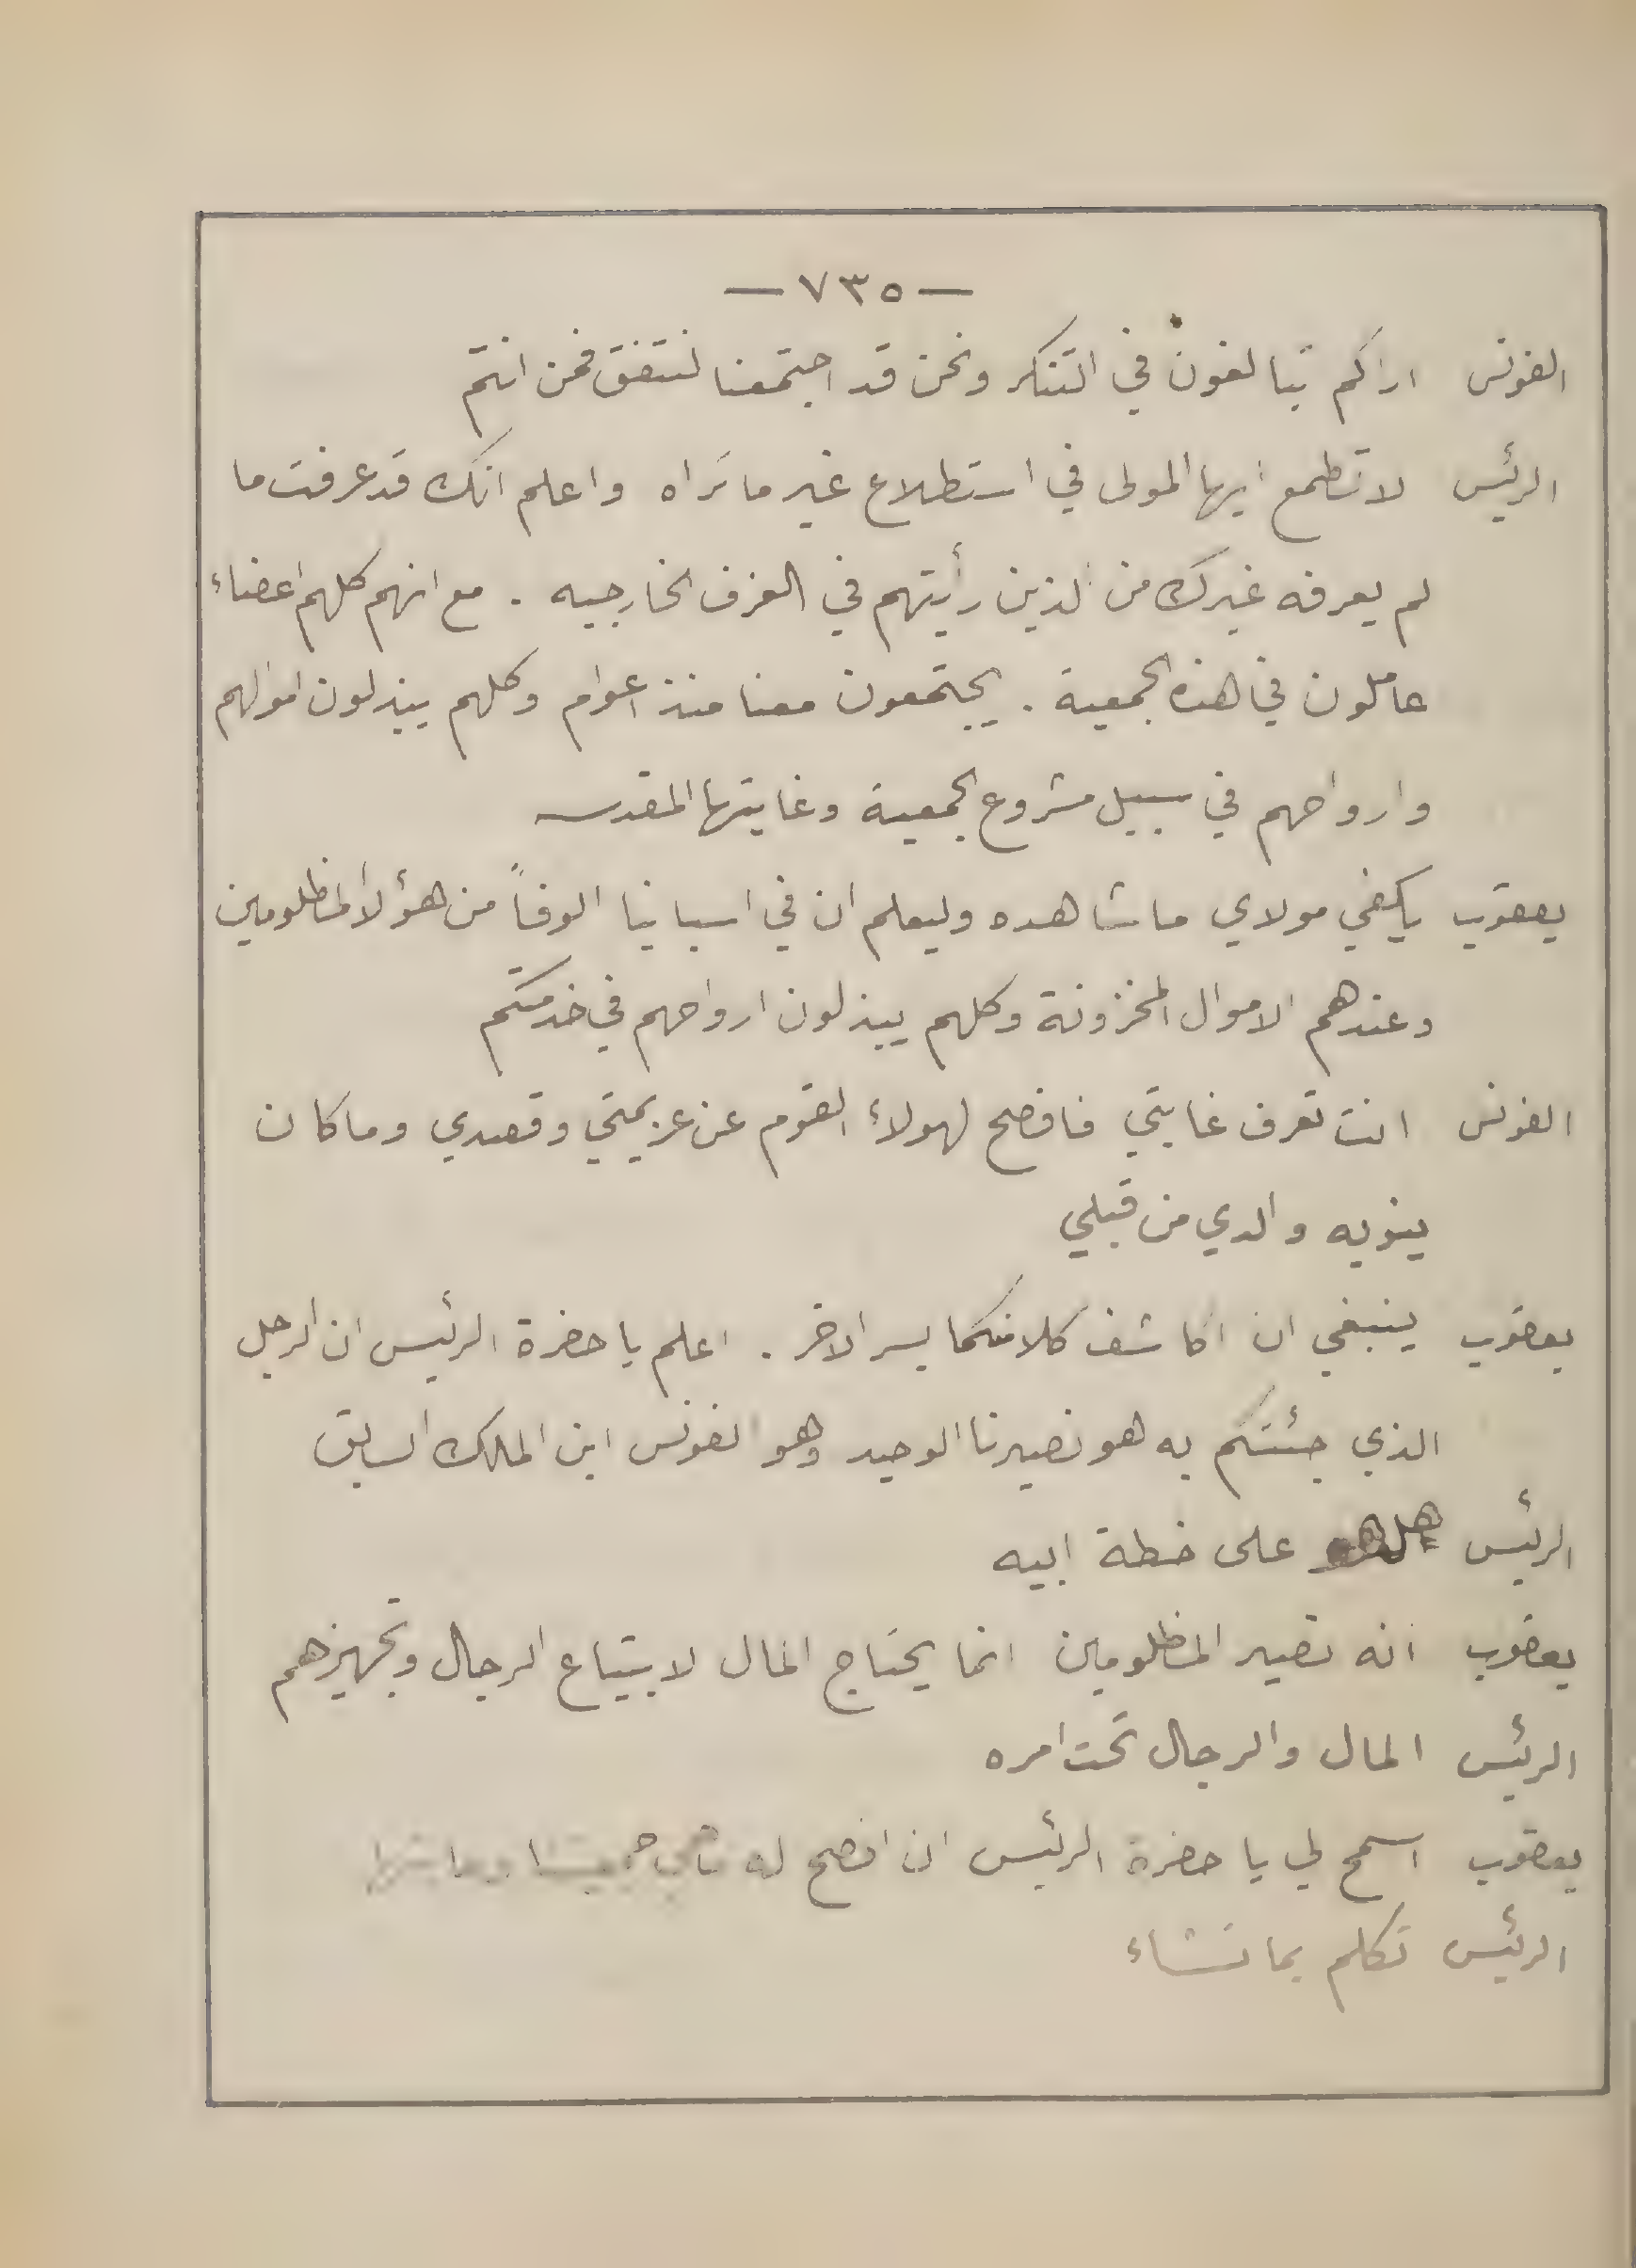 — ٧٣٥ —
الفونس اراكم تبالغون في التنكر ونحن قد اجتمعنا لنتفق فمن انتم
الرئيس لا تطمع ايها المولى في استطلاع غير ما تراه واعلم انك قد عرفت ما
لم يعرفه غيرك من الذين رأيتهم في الغرف الخارجيه . مع انهم كلهم اعضاء
عاملون في هذه الجمعية . يجتمعون معنا منذ اعوام وكلهم يبذلون اموالهم
وارواحهم في سبيل مشروع الجمعية وغايتها المقدسه
يعقوب يكفي مولاي ما شاهده وليعلم ان في اسبانيا الوفاً من هؤلاء المظلومين
وعندهم الاموال المخزونة وكلهم يبذلون ارواحهم في خدمتكم
الفونس انت تعرف غايتي فافصح لهولاء القوم عن عزيمتي وقصدي وما كان
ينويه والدي من قبلي
يعقوب ينبغي ان اكاشف كلا منكما بسر الاخر . اعلم يا حضرة الرئيس ان الرجل
الذي جئتكم به هو نصيرنا الوحيد وهو الفونس ابن الملك السابق
الرئيس هل هو على خطة ابيه
يعقوب انه نصير المظلومين انما يحتاج المال لابتياع الرجال وتجهيزهم
الرئيس المال والرجال تحت امره
يعقوب اسمح لي يا حضرة الرئيس ان افصح له
الرئيس تكلم بما تشاء